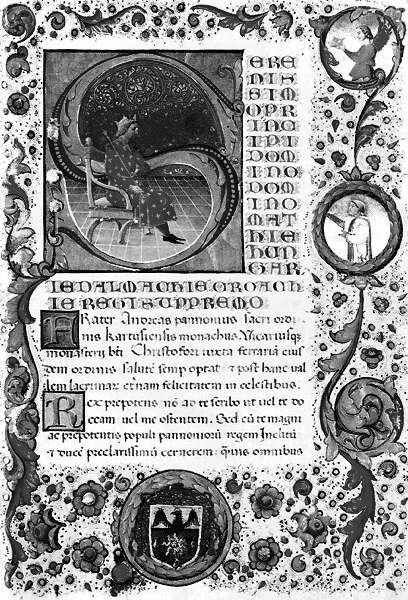 ERE
NIS
SIM
OPR
INC
IPI
DOM
INO
DOM
INO
MAT
HIE
HUN
GAR
IE DALMACHIE CROACH
IE REGI SUPPREMO
FRater Andreas pannonius sacri ordi
nis kartusiensis monachus Vicariusque
monasterii bti Christofori iuxta ferrariā eius
dem ordinis salutē semp optat & post hanc val
lem lacrimar eternam felicitatem in celestibus.
REx prepotens nō ad te scribo ut vel te do
ceam vel me ostentem. Sed cū te magni
ac prepotentis populi pannoniorū regem Inclitū
& ducē preclarissimū cernerem: quis omnibus